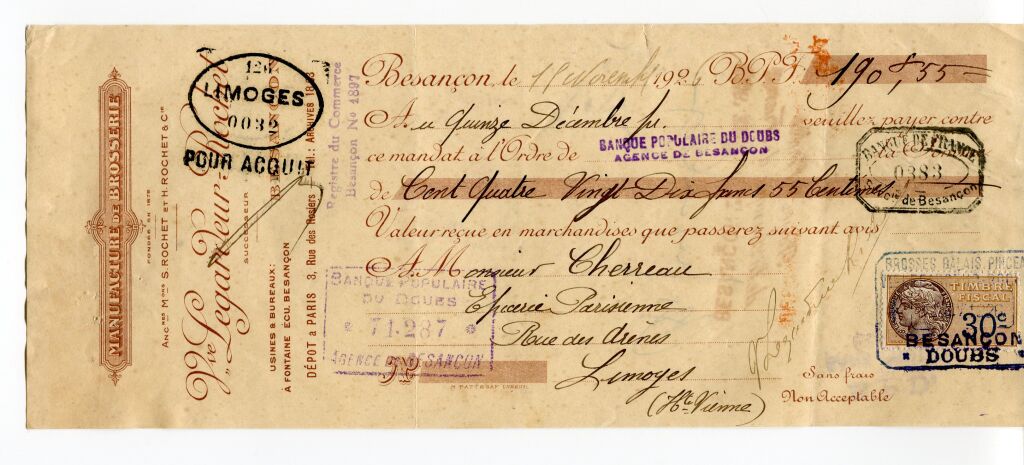 MANUFACTURE DE BROSSERIE
FONDÉE EN 1875
ANCNES MONS S. ROCHET ET H. ROCHET & CIE
Vve Leganeur-Rochet
SUCCESSEUR
BESANÇON
USINES & BUREAUX:
A FONTAINE ECU. BESANÇON
DÉPOT A PARIS 3, Rue des Rosiers TÉL: ARCHIVES 18
126
LIMOGES
0032
POUR ACQUIT
Registre du Commerce
Besançon No 4897
Besançon, le 15 Novembre 1926 B.P.F. 190f,55
Au quinze Décembre pr. veuillez payer contre
ce mandat à l'Ordre de
BANQUE POPULAIRE DU DOUBS
AGENCE DE BESANÇON
BANQUE DE FRANCE
0383
de Besançon
de Cent Quatre Vingt Dix francs 55 Centimes
Valeur reçue en marchandises que passerez suivant avis
A M Monsieur Cherreau
Epicerie Parisienne
Rue des Arènes
Limoges
(Hte Vienne)
BANQUE POPULAIRE
DU DOUBS
* 71.287 *
AGENCE DE BESANÇON
BROSSES BALAIS PINCEAU
TIMBRE
FISCAL
30c
BESANÇON
* DOUBS *
Sans frais
Non Acceptable